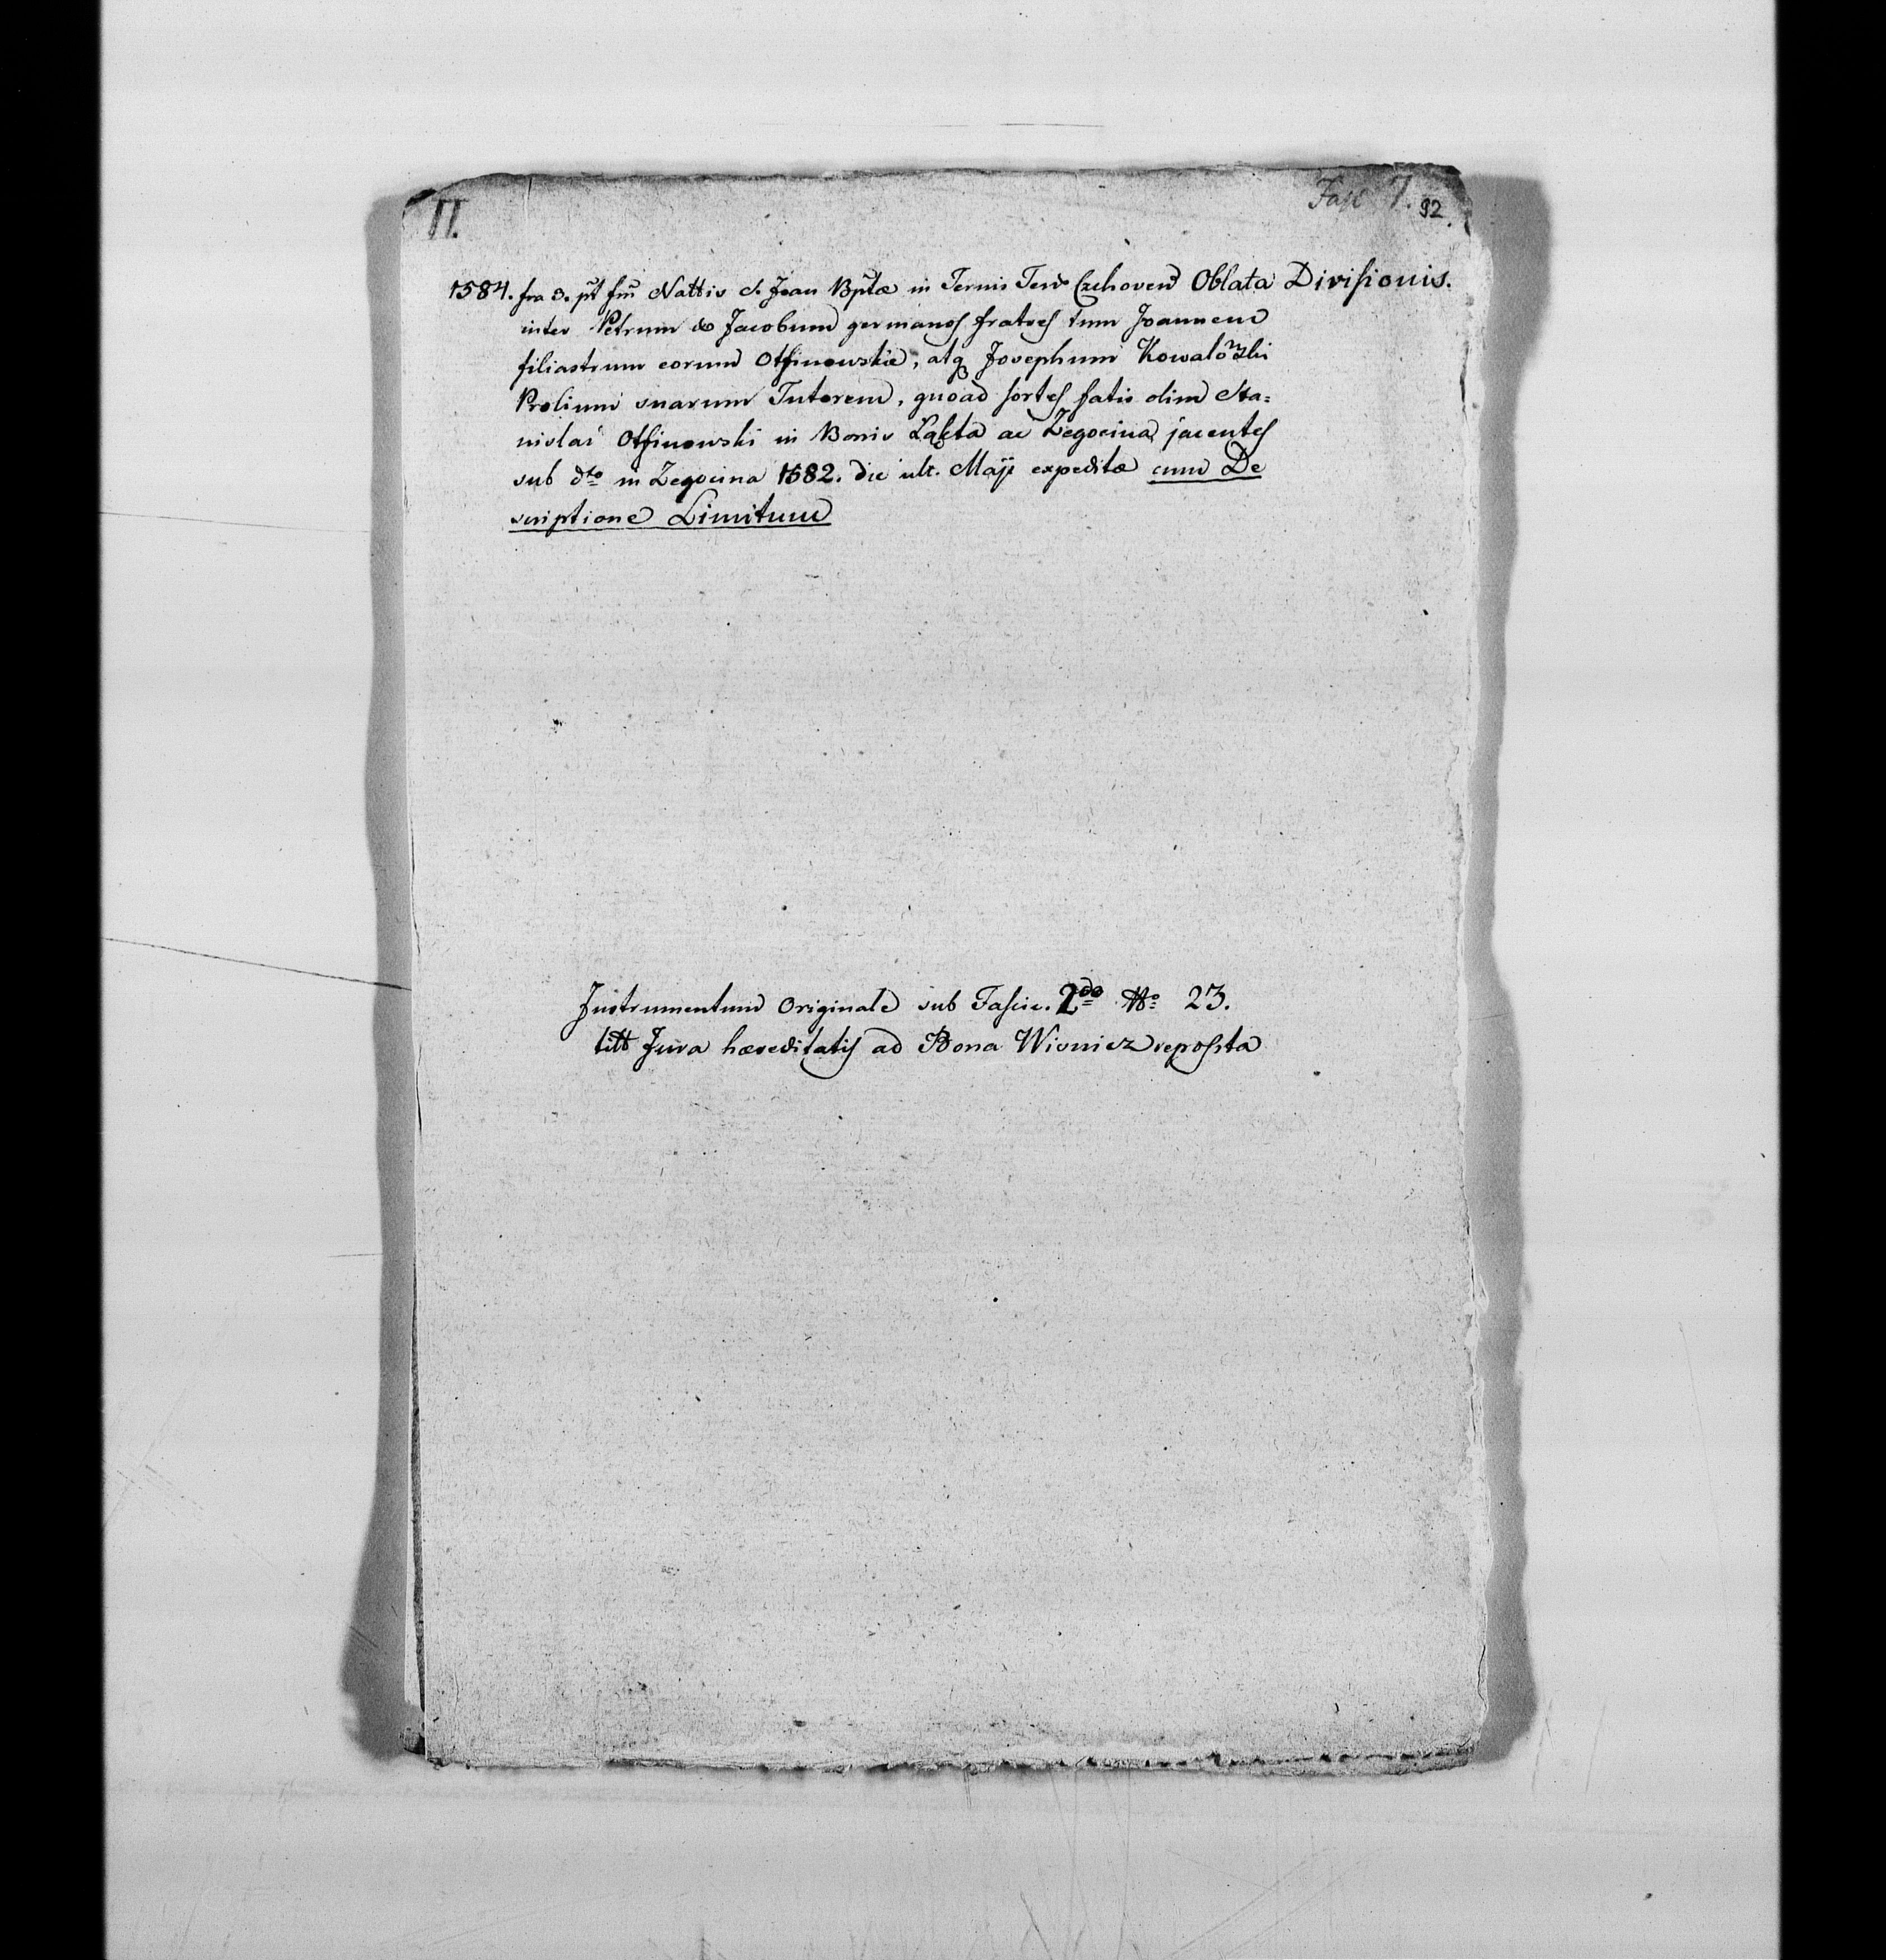 II.
Fasc 7. 92.
1584. fra 3. pt fm Nattis S. Joan Bptæ in Termis Terr Czchoven Oblata Divisionis.
inter Petrum & Jacobum germanos fratres tum Joannem
filiastrum eorum Otfinowskie, atq Josephum Kowalowski
Prolium suarum Tutorem, quoad sortes fatis olim Sta=
nislai Otfinowski in Bonis Łąkta ac Zegocina jacentes
sub dto in Zegocina 1582. die ult. Maji expeditæ cum De
scriptione Limitum
Instrumentum Originale sub Fascic. 2do No 23.
titt Jura hæreditatis ad Bona Wisnicz reposita